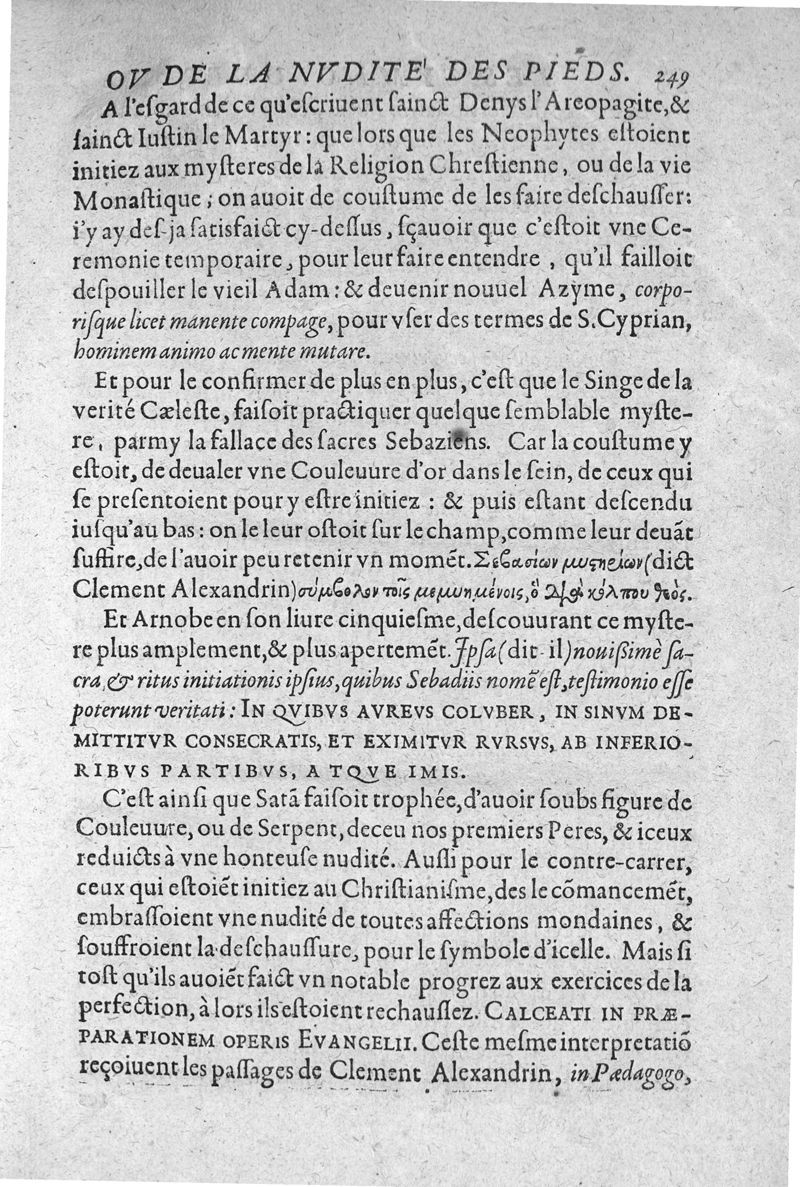 OV DE LA NVDITE' DES PIEDS. 249
A l'eſgard de ce qu'eſcriuent ſainct Denys l'Areopagite, &
ſainct Iuſtin le Martyr : que lors que les Neophytes eſtoient
initiez aux myſteres de la Religion Chreſtienne, ou de la vie
Monaſtique ; on auoit de couſtume de les faire deſchauſſer:
i'y ay deſ-ja ſatisfaict cy-deſſus, ſçauoir que c'eſtoit vne Ce-
remonie temporaire, pour leur faire entendre , qu'il failloit
deſpouiller le vieil Adam : & deuenir nouuel Azyme, corpo-
riſque licet manente compage, pour vſer des termes de S. Cyprian,
hominem animo ac mente mutare.
Et pour le confirmer de plus en plus, c'eſt que le Singe de la
verité Cæleſte, faiſoit practiquer quelque ſemblable myſte-
re, parmy la fallace des ſacres Sebaziens. Car la couſtume y
eſtoit, de deualer vne Couleuure d'or dans le ſein, de ceux qui
ſe preſentoient pour y eſtre initiez : & puis eſtant deſcendu
iuſqu'au bas : on le leur oſtoit ſur le champ, comme leur deuāt
ſuffire, de l'auoir peu retenir vn momēt. Σεβασίων μυςηείων (dict
Clement Alexandrin) σύμβολον τοῖς μεμυημένοις, ὁ Διὰ κόλπου θεὸς.
Et Arnobe en ſon liure cinquieſme, deſcouurant ce myſte-
re plus amplement, & plus apertemēt. Ipſa (dit-il) nouißimè ſa-
cra, & ritus initiationis ipſius, quibus Sebadiis nomē eſt, teſtimonio eſſe
poterunt veritati : IN QVIBVS AVREVS COLVBER, IN SINVM DE-
MITTITVR CONSECRATIS, ET EXIMITVR RVRSVS, AB INFERIO-
RIBVS PARTIBVS, ATQVE IMIS.
C'eſt ainſi que Satā faiſoit trophée, d'auoir ſoubs figure de
Couleuure, ou de Serpent, deceu nos premiers Peres, & iceux
reduicts à vne honteuſe nudité. Auſſi pour le contre-carrer,
ceux qui eſtoiēt initiez au Chriſtianiſme, des le cōmancemēt,
embraſſoient vne nudité de toutes affections mondaines, &
ſouffroient la deſchauſſure, pour le ſymbole d'icelle. Mais ſi
toſt qu'ils auoiēt faict vn notable progrez aux exercices de la
perfection, à lors ils eſtoient rechauſſez. CALCEATI IN PRÆ-
PARATIONEM OPERIS EVANGELII. Ceſte meſme interpretatiō
reçoiuent les paſſages de Clement Alexandrin, in Pædagogo,